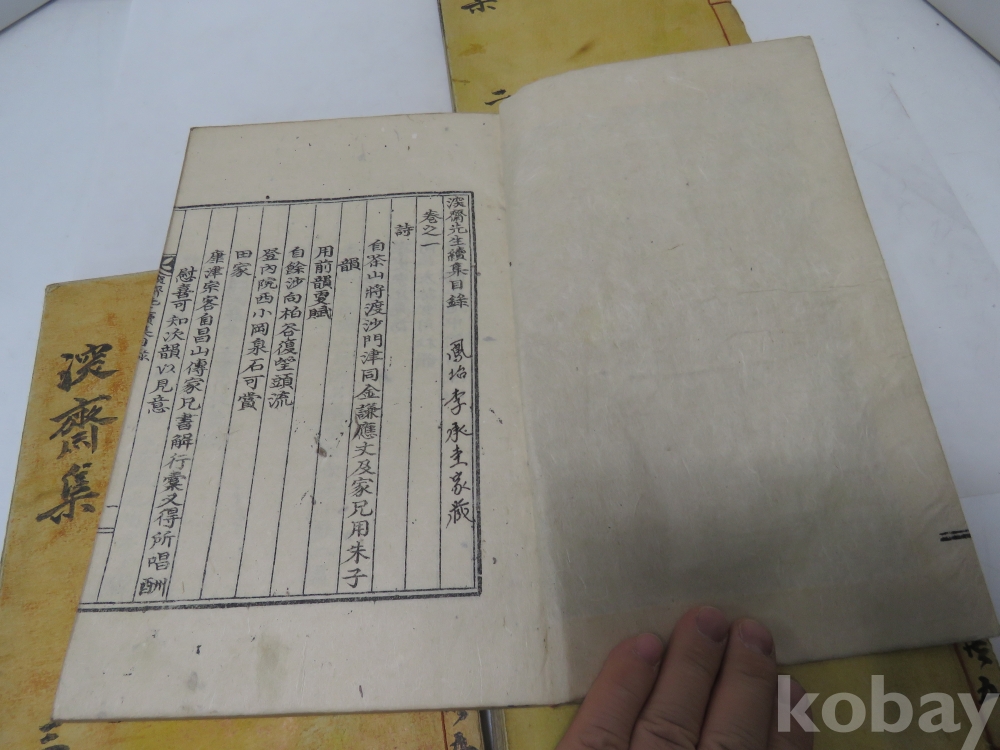 淡齋先生續集目錄 鳳坮李承圭家藏
卷之一
詩
自茶山將渡沙門津同金謙應丈及家兄用朱子
韻
用前韻更賦
自餘沙向柏谷復望頭流
登內院西小岡泉石可賞
田家
康津宗客自昌山傳家兄書解行槖又得所唱酬
慰喜可知次韻以見意
淡齋集
三
集
二
kobay